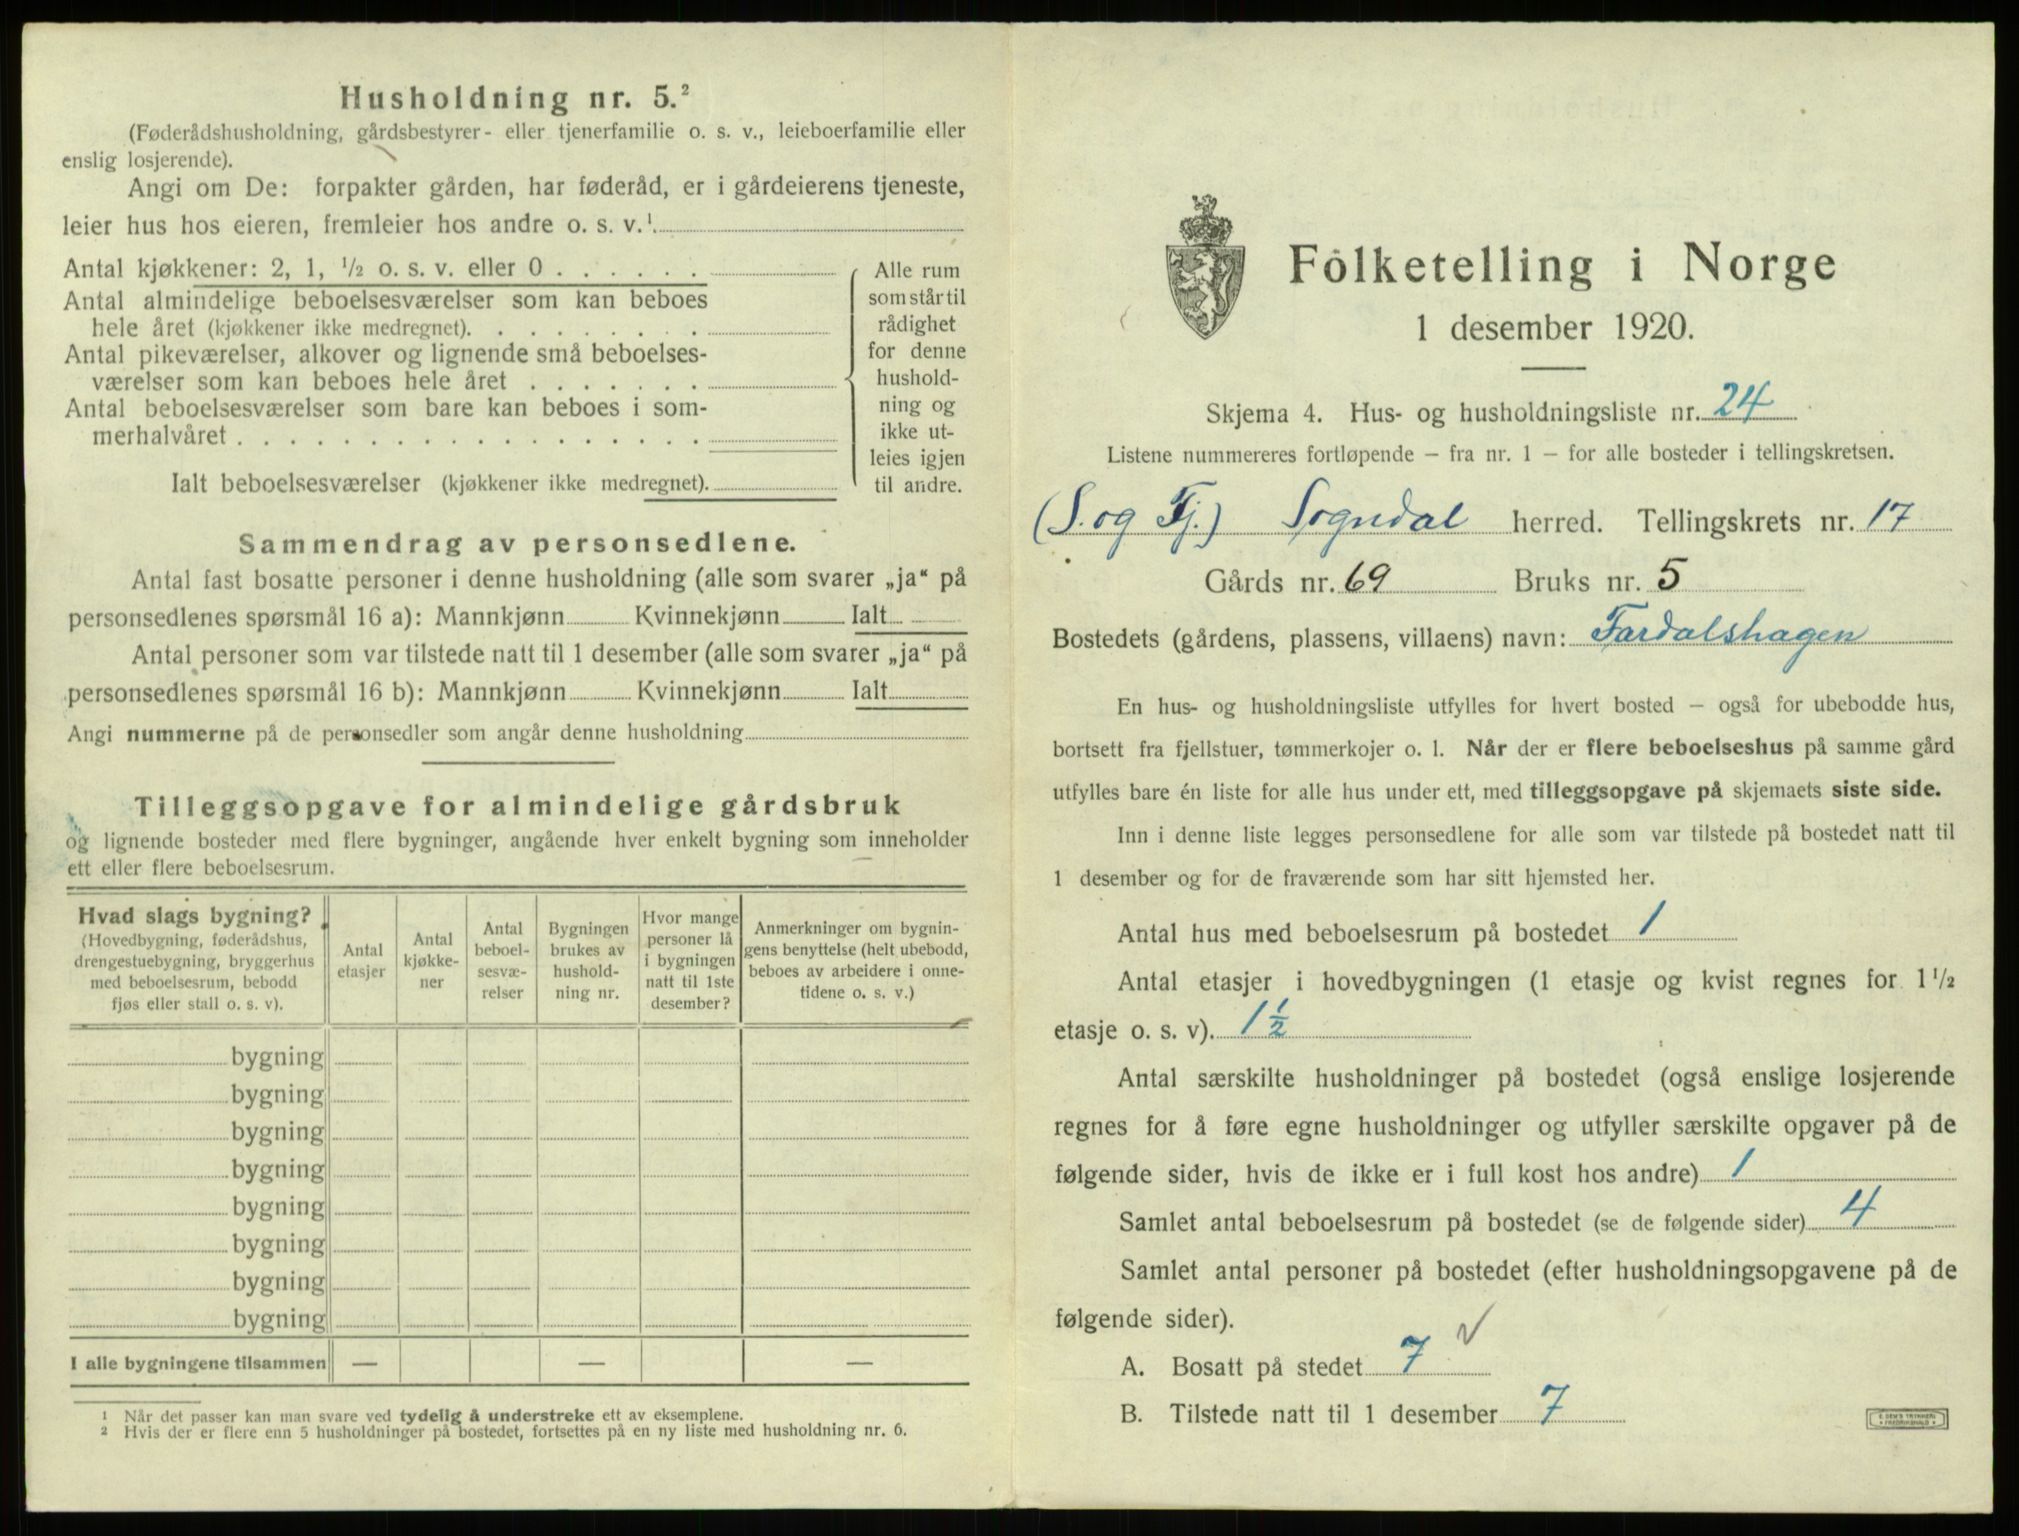 Husholdning nr. 5.²
(Føderådshusholdning, gårdsbestyrer- eller tjenerfamilie o. s. v., leieboerfamilie eller
enslig losjerende).
Angi om De: forpakter gården, har føderåd, er i gårdeierens tjeneste,
leier hus hos eieren, fremleier hos andre o. s. v.¹
Antal kjøkkener: 2, 1, ½ o. s. v. eller 0 . . . . . .
Antal almindelige beboelsesværelser som kan beboes
hele året (kjøkkener ikke medregnet). . . . . . . . .
Antal pikeværelser, alkover og lignende små beboelses-
værelser som kan beboes hele året . . . . . . .
Antal beboelsesværelser som bare kan beboes i som-
merhalvåret . . . . . . . . . . . . . . . . . .
Ialt beboelsesværelser (kjøkkener ikke medregnet).
Alle rum
som står til
rådighet
for denne
hushold-
ning og
ikke ut-
leies igjen
til andre.
Sammendrag av personsedlene.
Antal fast bosatte personer i denne husholdning (alle som svarer „ja“ på
personsedlenes spørsmål 16 a): Mannkjønn Kvinnekjønn Ialt
Antal personer som var tilstede natt til 1 desember (alle som svarer „ja“ på
personsedlenes spørsmål 16 b): Mannkjønn Kvinnekjønn Ialt
Angi nummerne på de personsedler som angår denne husholdning
Tilleggsopgave for almindelige gårdsbruk
og lignende bosteder med flere bygninger, angående hver enkelt bygning som inneholder
ett eller flere beboelsesrum.
Hvad slags bygning?
(Hovedbygning, føderådshus,
drengestuebygning, bryggerhus
med beboelsesrum, bebodd
fjøs eller stall o. s. v).
Antal
etasjer
Antal
kjøkke-
ner
Antal
beboel-
sesvæ-
relser
Bygningen
brukes av
hushold-
ning nr.
Hvor mange
personer lå
i bygningen
natt til 1ste
desember?
Anmerkninger om bygnin-
gens benyttelse (helt ubebodd,
beboes av arbeidere i onne-
tidene o. s. v.)
bygning
bygning
bygning
bygning
bygning
bygning
bygning
bygning
I alle bygningene tilsammen — — —
¹ Når det passer kan man svare ved tydelig å understreke ett av eksemplene.
² Hvis der er flere enn 5 husholdninger på bostedet, fortsettes på en ny liste med husholdning nr. 6.
Folketelling i Norge
1 desember 1920.
Skjema 4. Hus- og husholdningsliste nr. 24
Listene nummereres fortløpende – fra nr. 1 – for alle bosteder i tellingskretsen.
(S. og Fj.) Sogndal herred. Tellingskrets nr. 17
Gårds nr. 69 Bruks nr. 5
Bostedets (gårdens, plassens, villaens) navn: Fardalshagen
En hus- og husholdningsliste utfylles for hvert bosted – også for ubebodde hus,
bortsett fra fjellstuer, tømmerkojer o. l. Når der er flere beboelseshus på samme gård
utfylles bare én liste for alle hus under ett, med tilleggsopgave på skjemaets siste side.
Inn i denne liste legges personsedlene for alle som var tilstede på bostedet natt til
1 desember og for de fraværende som har sitt hjemsted her.
Antal hus med beboelsesrum på bostedet 1
Antal etasjer i hovedbygningen (1 etasje og kvist regnes for 1½
etasje o. s. v). 1½
Antal særskilte husholdninger på bostedet (også enslige losjerende
regnes for å føre egne husholdninger og utfyller særskilte opgaver på de
følgende sider, hvis de ikke er i full kost hos andre) 1
Samlet antal beboelsesrum på bostedet (se de følgende sider) 4
Samlet antal personer på bostedet (efter husholdningsopgavene på de
følgende sider).
A. Bosatt på stedet 7 ✓
B. Tilstede natt til 1 desember 7